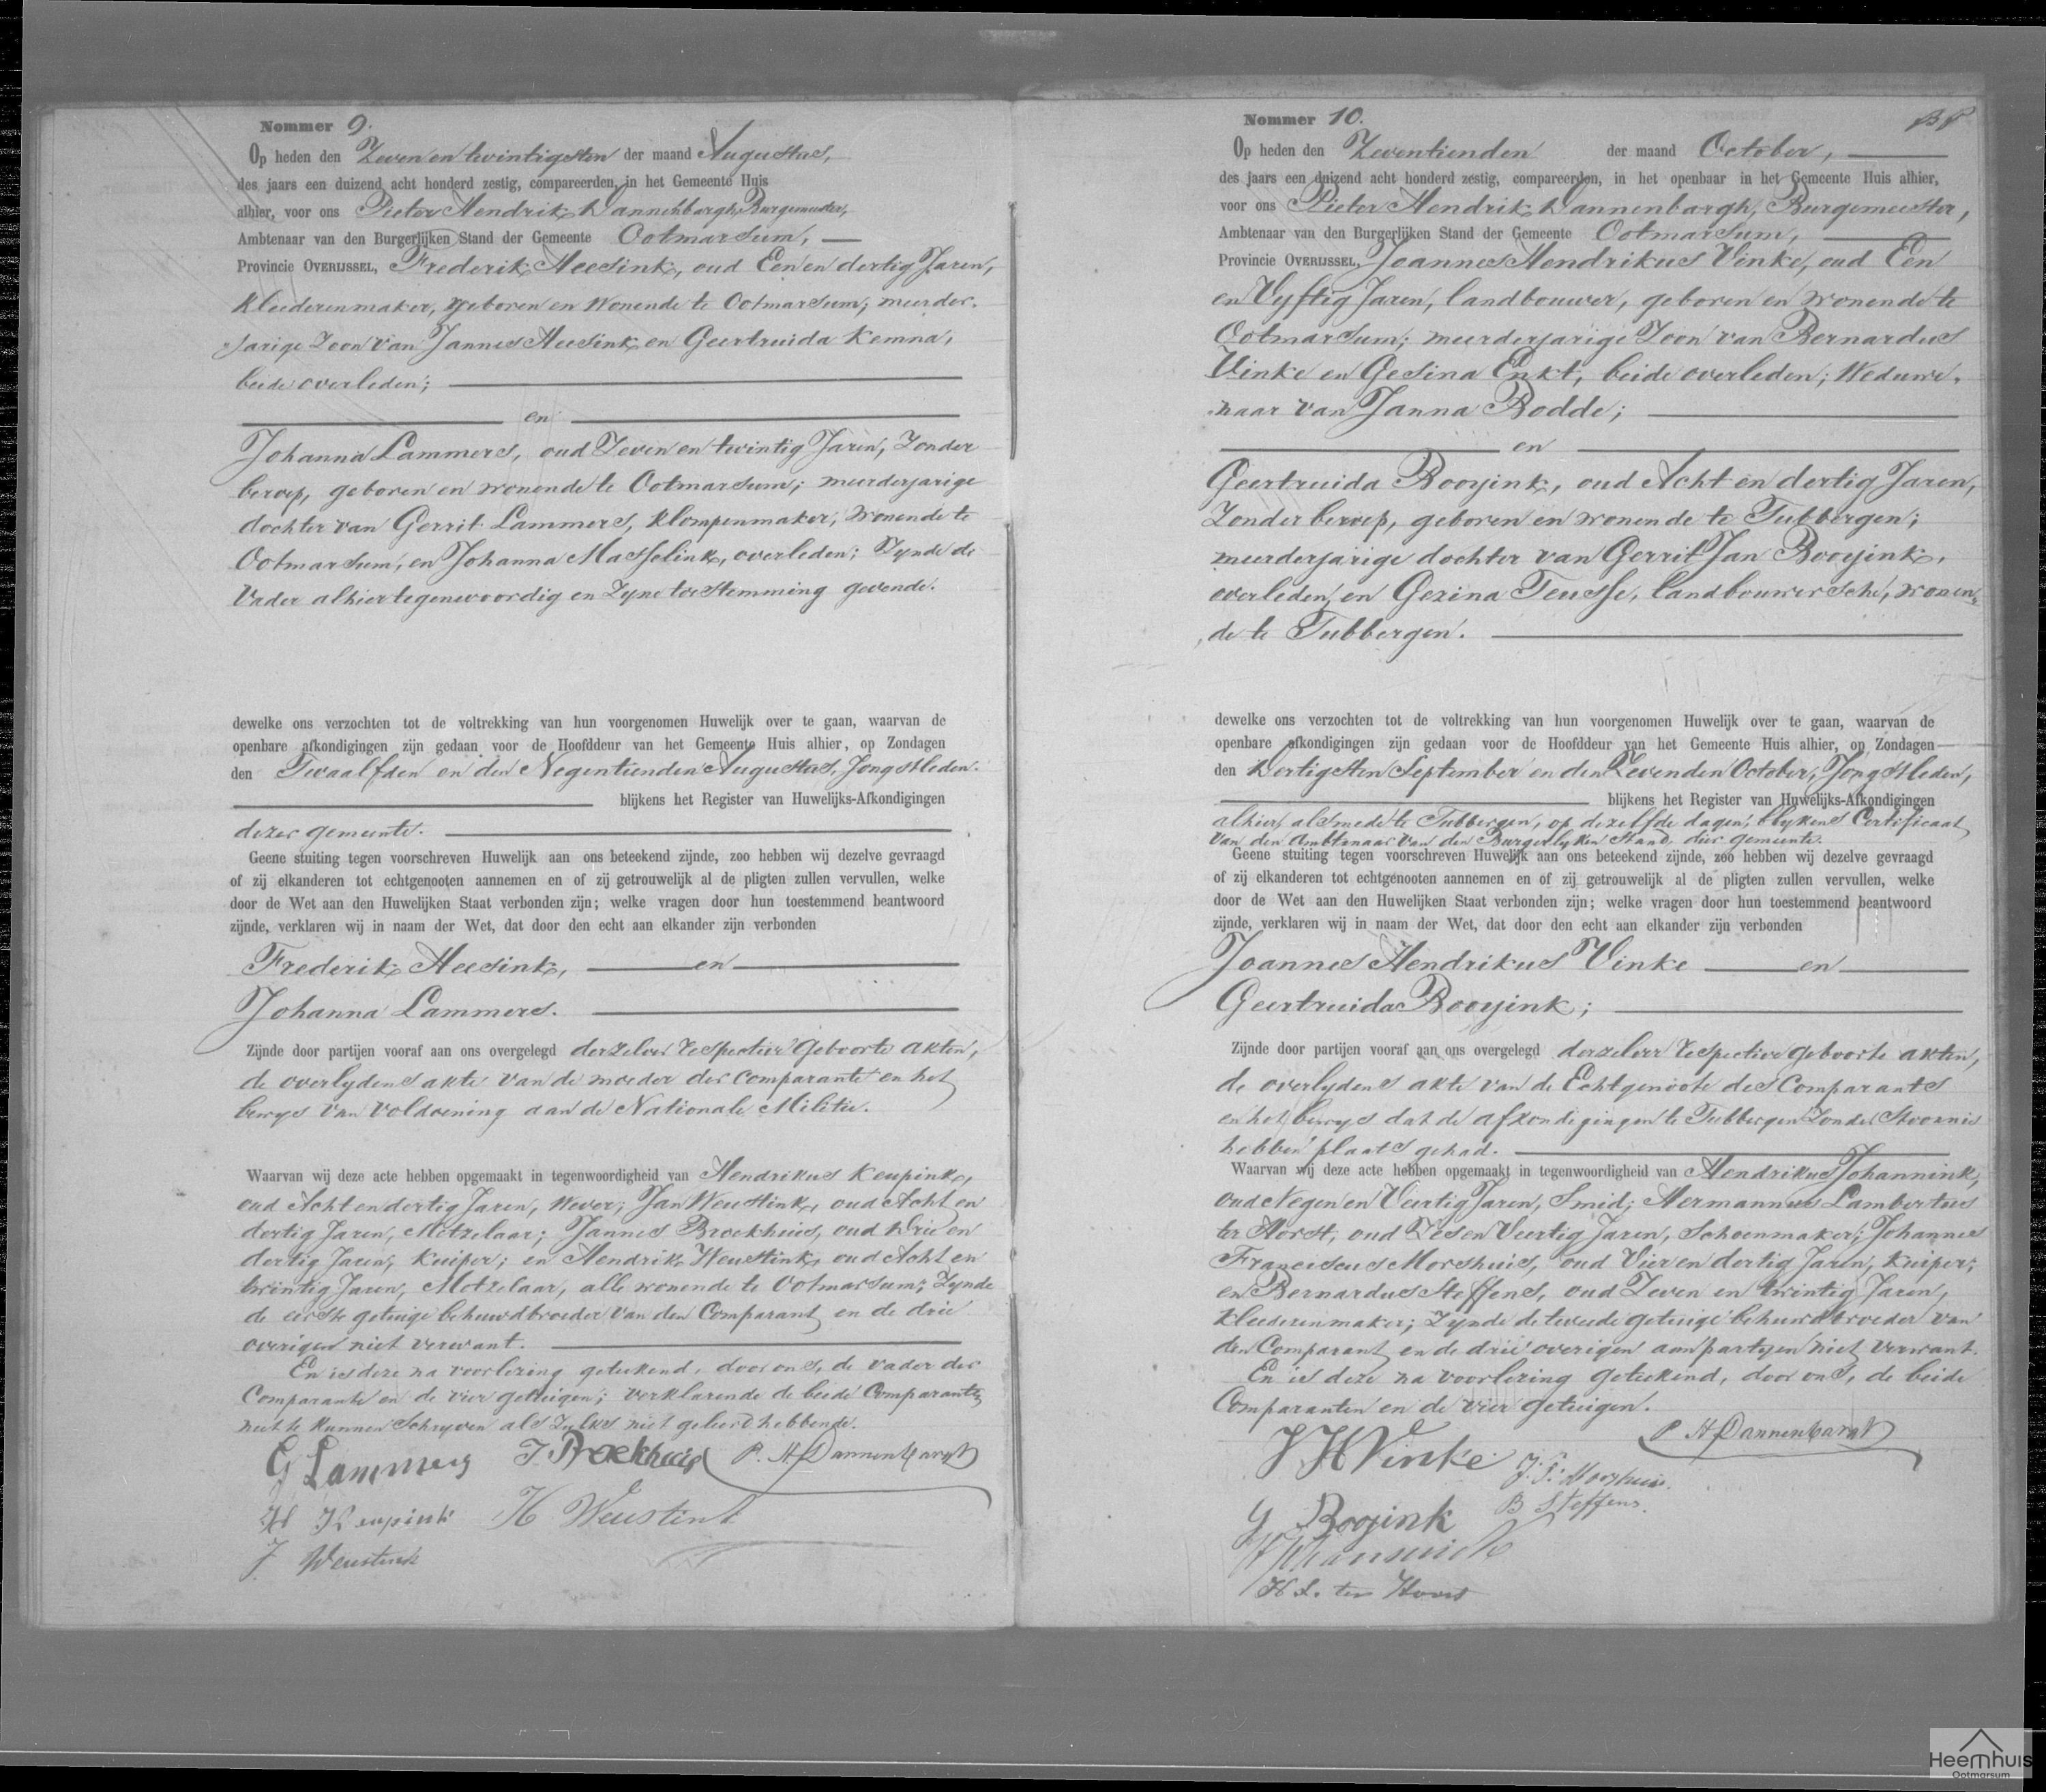 Nommer 9.
Op heden den Zeven en twintigsten der maand Augustus,
des jaars een duizend acht honderd zestig, compareerden, in het Gemeente Huis
alhier, voor ons Pieter Hendrik Dannenbargh, Burgemeester,
Ambtenaar van den Burgerlijken Stand der Gemeente Ootmarsum,
Provincie OVERIJSSEL, Frederik Heesink, oud Een en dertig Jaren,
kleederenmaker, geboren en wonende te Ootmarsum; meerder-
jarige Zoon van Jannes Heesink en Geertruida Kemna,
beide overleden;
en
Johanna Lammers, oud Zeven en twintig Jaren, Zonder
beroep, geboren en wonende te Ootmarsum; meerderjarige
dochter van Gerrit Lammers, klompenmaker, wonende te
Ootmarsum, en Johanna Masselink, overleden; Zynde de
Vader alhier tegenwoordig en Zyne toestemming gevende.
dewelke ons verzochten tot de voltrekking van hun voorgenomen Huwelijk over te gaan, waarvan de
openbare afkondigingen zijn gedaan voor de Hoofddeur van het Gemeente Huis alhier, op Zondagen
den Twaalfden en den Negentienden Augustus, Jongstleden.
blijkens het Register van Huwelijks-Afkondigingen
dezer gemeente.
Geene stuiting tegen voorschreven Huwelijk aan ons beteekend zijnde, zoo hebben wij dezelve gevraagd
of zij elkanderen tot echtgenooten aannemen en of zij getrouwelijk al de pligten zullen vervullen, welke
door de Wet aan den Huwelijken Staat verbonden zijn; welke vragen door hun toestemmend beantwoord
zijnde, verklaren wij in naam der Wet, dat door den echt aan elkander zijn verbonden
Frederik Heesink, en
Johanna Lammers.
Zijnde door partijen vooraf aan ons overgelegd derzelver respective geboorte akten,
de overlydens akte van de moeder der Comparante en het
bewys van voldoening aan de Nationale Militie.
Waarvan wij deze acte hebben opgemaakt in tegenwoordigheid van Hendrikus Keupink,
oud Acht en dertig Jaren, Wever; Jan Weustink, oud Acht en
dertig Jaren, Metzelaar; Jannes Broekhuis, oud Drie en
dertig Jaren, Kuiper; en Hendrik Weustink, oud Acht en
twintig Jaren, Metzelaar, alle wonende te Ootmarsum; Zynde
de eerste getuige behuwdbroeder van den Comparant en de drie
overigen niet verwant.
En is deze na voorlezing geteekend, door ons, de vader der
Comparante en de vier getuigen; verklarende de beide Comparanten
niet te kunnen Schryven als zulks niet geleerd hebbende.
G Lammers J. Broekhuis P. H. Dannenbargh
H Keupink H. Weustink
J. Weustink
Nommer 10.
Op heden den Zeventienden der maand October,
des jaars een duizend acht honderd zestig, compareerden, in het openbaar in het Gemeente Huis alhier,
voor ons Pieter Hendrik Dannenbargh, Burgemeester,
Ambtenaar van den Burgerlijken Stand der Gemeente Ootmarsum,
Provincie OVERIJSSEL, Joannes Hendrikus Vinke, oud Een
en Vyftig Jaren, landbouwer, geboren en wonende te
Ootmarsum; meerderjarige Zoon van Bernardus
Vinke en Gesina Enkt, beide overleden; Weduwe-
naar van Janna Bodde;
en
Geertruida Booyink, oud Acht en dertig Jaren,
Zonder beroep, geboren en wonende te Tubbergen;
meerderjarige dochter van Gerrit Jan Booyink,
overleden, en Gezina Teusse, landbouwersche, wonen-
de te Tubbergen.
dewelke ons verzochten tot de voltrekking van hun voorgenomen Huwelijk over te gaan, waarvan de
openbare afkondigingen zijn gedaan voor de Hoofddeur van het Gemeente Huis alhier, op Zondagen
den Dertigsten September en den Zevenden October, Jongstleden,
blijkens het Register van Huwelijks-Afkondigingen
alhier, alsmede te Tubbergen, op dezelfde dagen, blykens Certificaat
van den Ambtenaar van den Burgerlyken Stand, dier gemeente.
Geene stuiting tegen voorschreven Huwelijk aan ons beteekend zijnde, zoo hebben wij dezelve gevraagd
of zij elkanderen tot echtgenooten aannemen en of zij getrouwelijk al de pligten zullen vervullen, welke
door de Wet aan den Huwelijken Staat verbonden zijn; welke vragen door hun toestemmend beantwoord
zijnde, verklaren wij in naam der Wet, dat door den echt aan elkander zijn verbonden
Joannes Hendrikus Vinke en
Geertruida Booyink;
Zijnde door partijen vooraf aan ons overgelegd derzelver respective geboorte akten,
de overlydens akte van de Echtgenoote des Comparants
en het bewys dat de afkondigingen te Tubbergen Zonder Stoornis
hebben plaats gehad.
Waarvan wij deze acte hebben opgemaakt in tegenwoordigheid van Hendrikus Johannink,
oud Negen en Veertig Jaren, Smid; Hermannus Lambertus
ter Horst, oud Zes en Veertig Jaren, Schoenmaker; Johannes
Franciscus Morshuis, oud Vier en dertig Jaren, Kuiper;
en Bernardus Steffens, oud Zeven en twintig Jaren,
kleederenmaker; Zynde de tweede getuige behuwdbroeder van
den Comparant en de drie overigen aan partyen niet verwant.
En is deze na voorlezing geteekend, door ons, de beide
Comparanten en de vier getuigen.
P. H. Dannenbargh
J H Vinke
J. F. Morshuis.
G Booyink B Steffens.
H L. ter Horst
Heemhuis
Ootmarsum